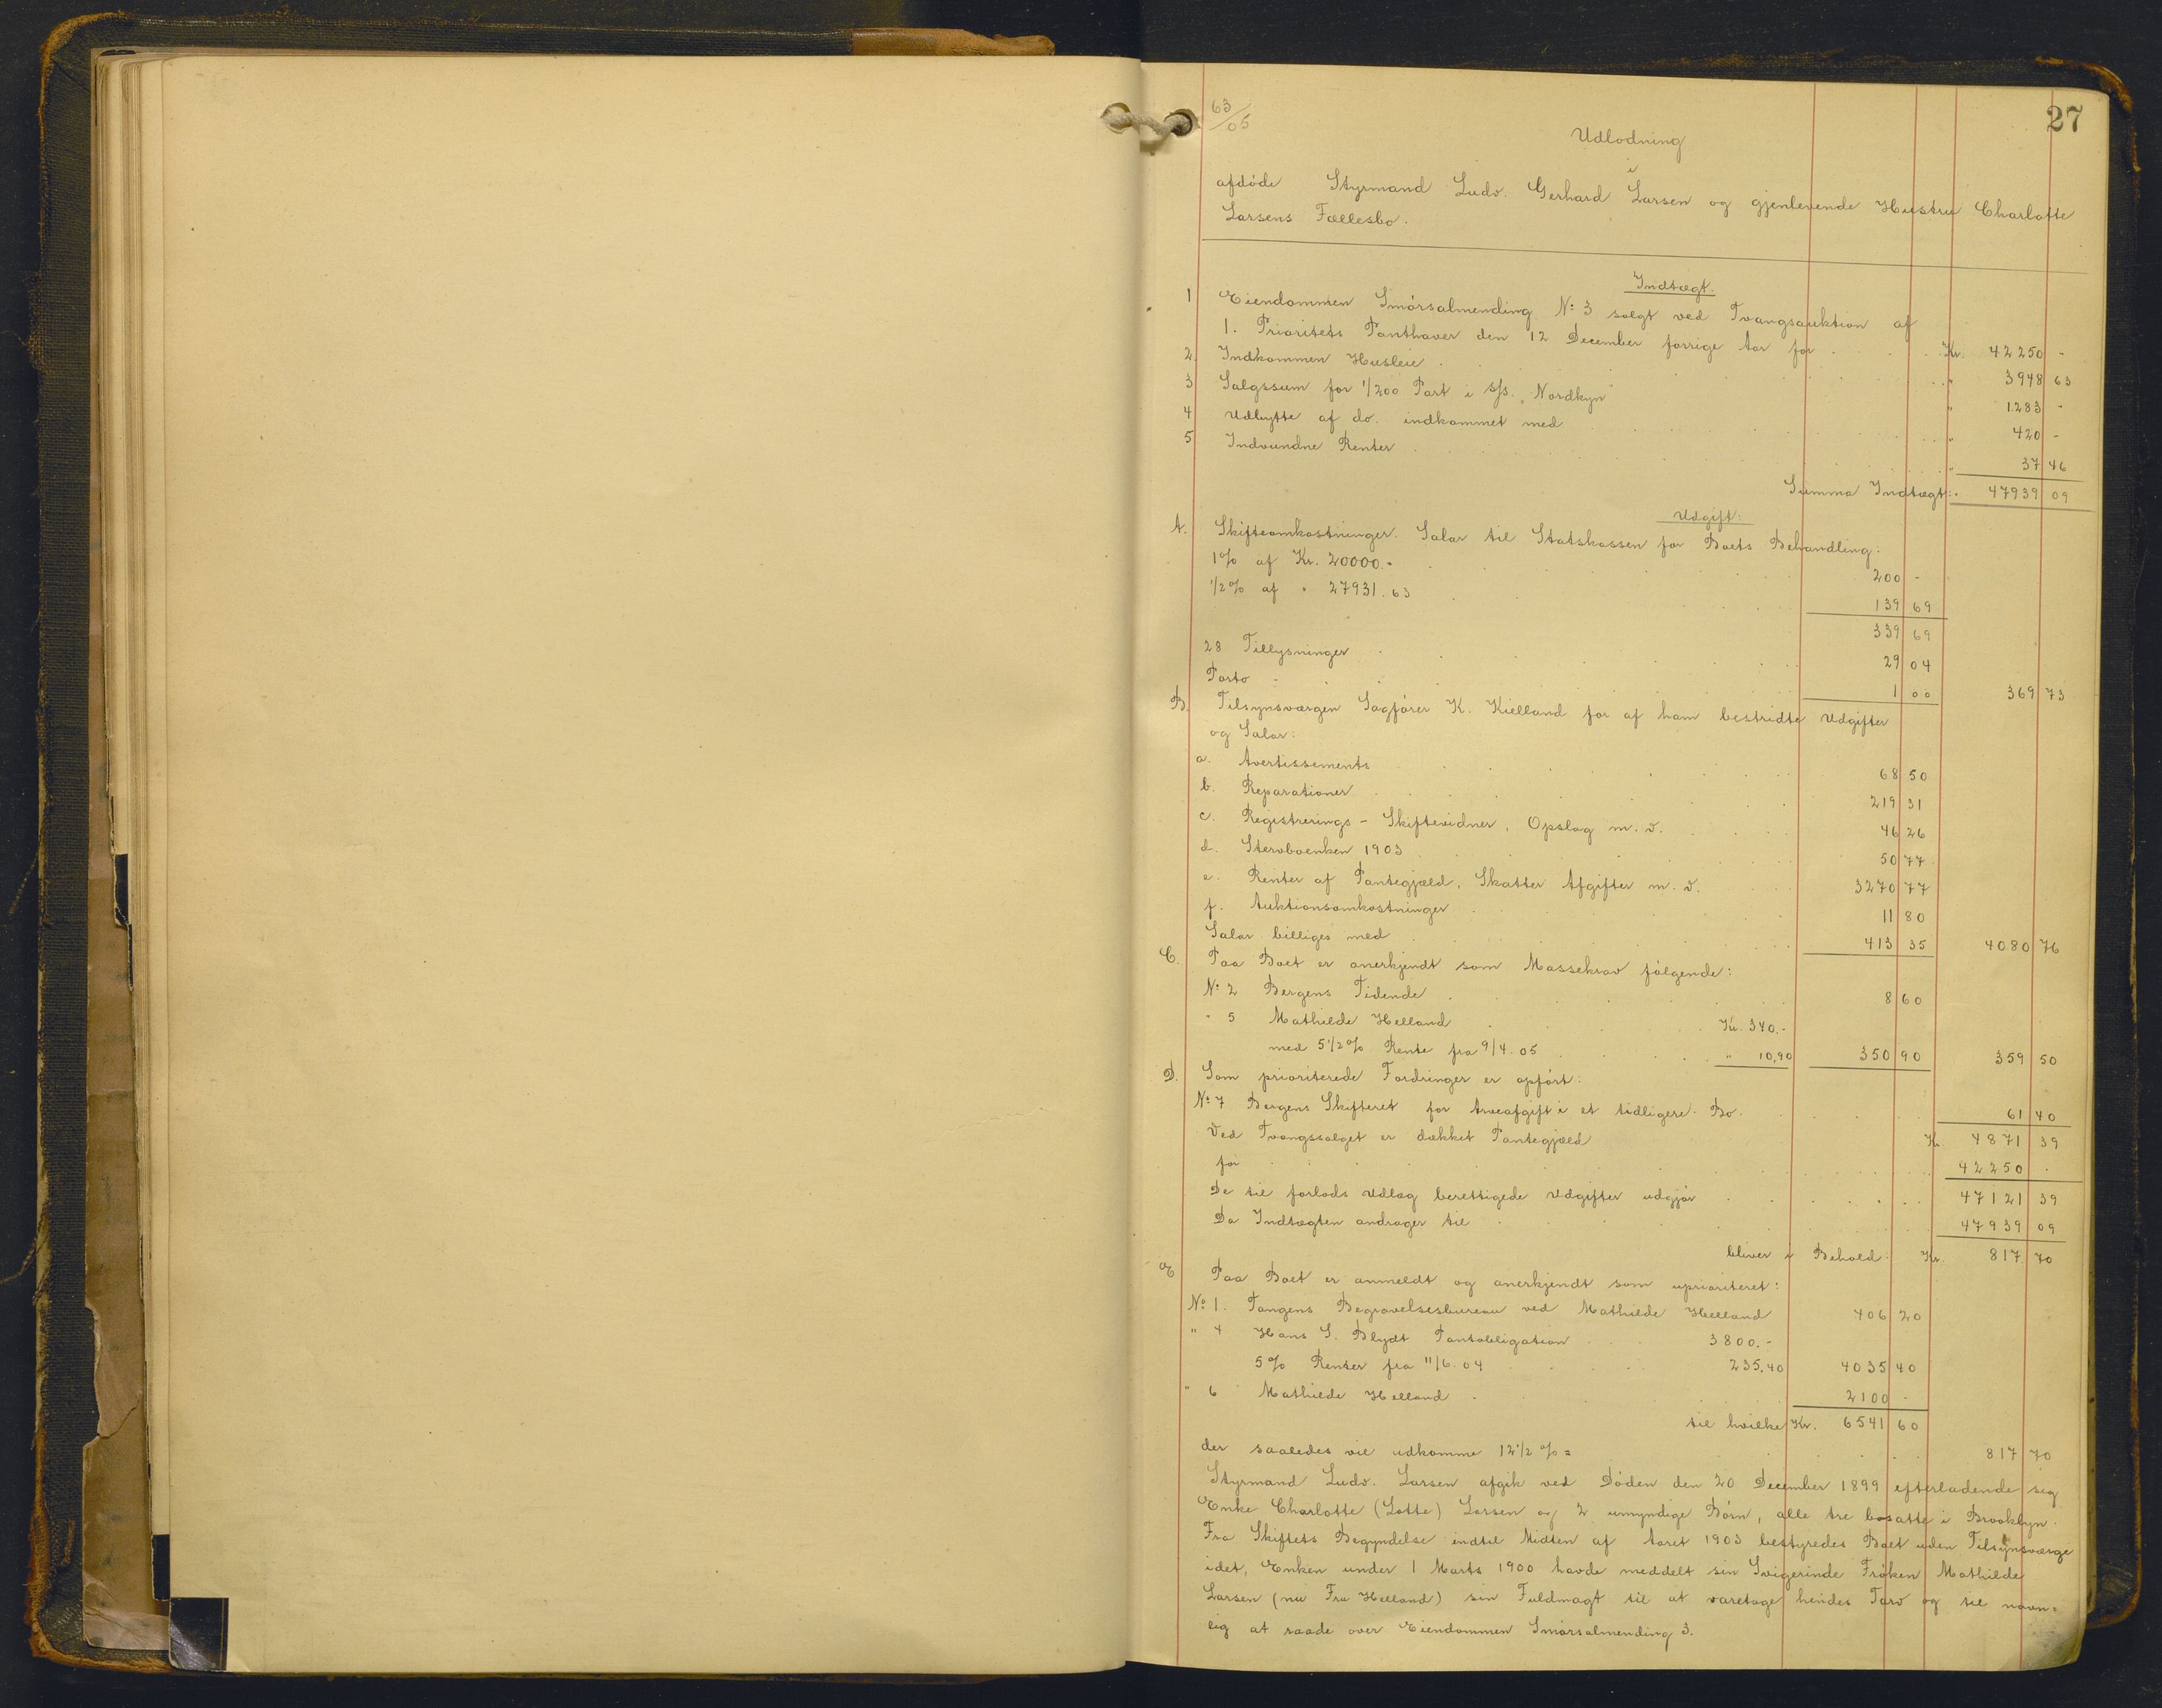 63/05
27
Udlodning
i
afdöde Styrmand Ludv. Gerhard Larsen og gjenlevende Hustru Charlotte
Larsens Fællesbo.
Indtægt.
1 Eiendommen Smörsalmending No 3 solgt ved Tvangsauktion af
1. Prioritets Panthaver den 12 December forrige Aar for . . . . . Kr. 42250 -
2. Indkommen Husleie . . . . . " 3948 63
3 Salgssum for 1/200 Part i s/s. "Nordkyn" " 1283 -
4 Udbytte af do. indkommet med . . . . . " 420 -
5 Indvundne Renter . . . . . " 37 46
Summa Indtægt: 47939 09
Udgift:
A. Skifteomkostninger. Salar til Statskassen for Boets Behandling:
1% af Kr. 20000.- . . . . . 200 -
1/2% af " 27931.63 . . . . . 139 69
339 69
28 Tillysninger . . . . . 29 04
Porto . . . . . 1 00 369 73
B. Tilsynsværgen Sagförer K. Kielland for af ham bestridte Udgifter
og Salar:
a. Avertissements . . . . . 68 50
b. Reparationer . . . . . 219 31
c. Registrerings - Skiftevidner, Opslag m. v. . . . . . 46 26
d. Stervboenken 1903 . . . . . 50 77
e. Renter af Pantegjæld, Skatter Afgifter m. v. . . . 3270 77
f. Auktionsomkostninger . . . . . 11 80
Salar billiges med . . . . . 413 35 4080 76
C. Paa Boet er anerkjendt som Massekrav fölgende:
No 2 Bergens Tidende . . . . . 8 60
" 5 Mathilde Helland . . . . . Kr. 340.-
med 5 1/2% Rente fra 9/4. 05 . . . . . " 10,90 350 90 359 50
D. Som prioriterede Fordringer er opfört:
No 7 Bergens Skifteret for Arveafgift i et tidligere Bo. . . . . 61 40
Kr. 4871 39
Ved Tvangssalget er dækket Pantegjæld
for . . . . . 42250 .
De til forlods Udlæg berettigede Udgifter udgjör . . . . . 47121 39
Da Indtægten andrager til . . . . . 47939 09
bliver i Behold: Kr. 817 70
E Paa Boet er anmeldt og anerkjendt som uprioriteret:
No 1. Tangens Begravelsesbureau ved Mathilde Helland 406 20
" 4 Hans S. Blydt Pantobligation . . . 3800.-
5% Renter fra 11/6. 04 . . . . . 235.40 4035 40
" 6 Mathilde Helland . . . . . 2100 -
til hvilke Kr. 6541 60
der saaledes vil udkomme 12 1/2 % = . . . . . 817 70
Styrmand Ludv. Larsen afgik ved Döden den 20 December 1899 efterladende sig
Enke Charlotte (Lotte) Larsen og 2 umyndige Börn, alle tre bosatte i Brooklyn.
Fra Skiftets Begyndelse indtil Midten af Aaret 1903 bestyredes Boet uden Tilsynsværge
idet, Enken under 1 Marts 1900 havde meddelt sin Svigerinde Fröken Mathilde
Larsen (nu Fru Helland) sin Fuldmagt til at varetage hendes Tarv og til navn=
lig at raade over Eiendommen Smörsalmending 3.